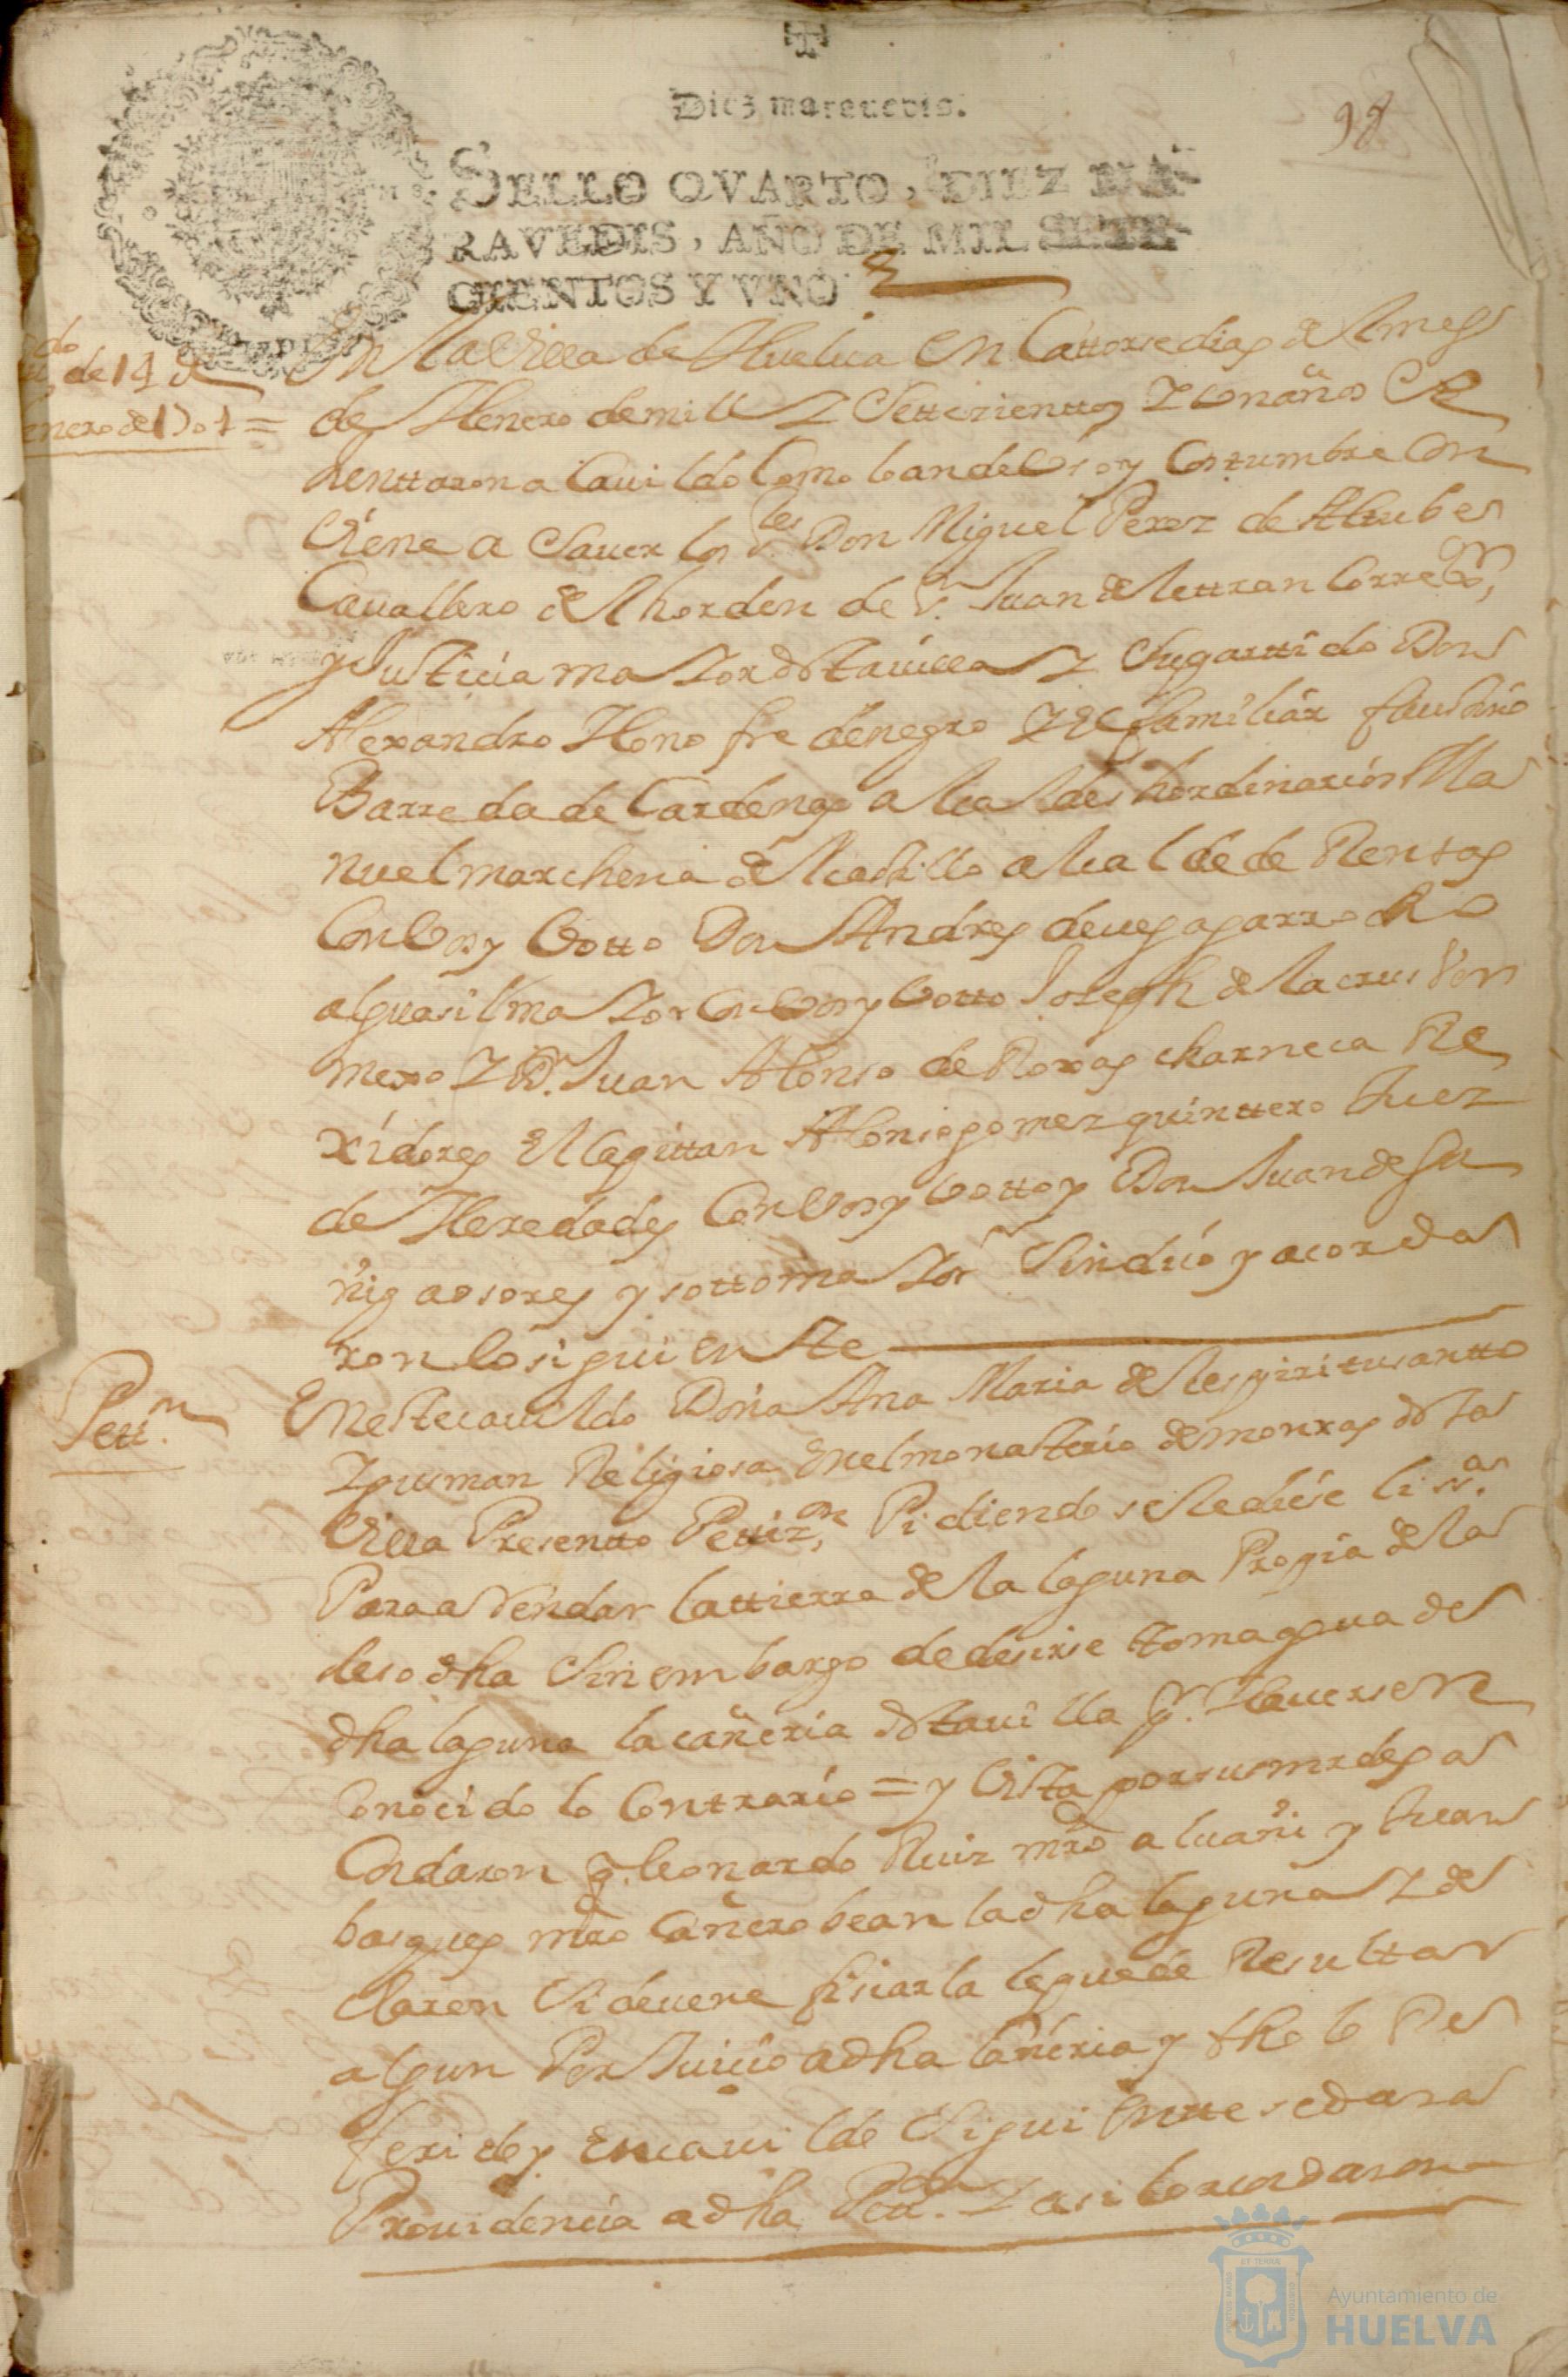 Diez maravedis.
98
SELLO QVARTO, DIEZ MA-
RAVEDIS, AÑO DE MIL SETE-
CIENTOS Y VNO
de 14 de
enero de 1701 =
En la Villa de Huelua En Cattorse dias del mes
de Henero de mill Y Settezienttos Y Un años Se
Jenttaron a Cauildo Como lo an de Vso y Costumbre Con
Viene a Sauer los Sres Don Miguel Perez de
Cauallero del horden de Sn Juan de lettran Corregor,
y Justicia maYor destauilla Y Supartido Don
Alexandro Honofre de negro Y El familiar
Barreda de Cardenas alcaldes hordinarios Ma
nuel marchena del Castillo alcalde de Rentas
Con Vos y Votto Don Andres de uegagarrocho
alguasil maYor Con Vos y Votto Joseph de la crus
mero Y Dn Juan Alonso de Roxas charneca Re
xidores El Capittan Alonso gomez quinttero Juez
de Heredades Con Vos y Votto y Don Juan de Su
ñiga osores y sottomaYor Sindico y acorda
ron lo siguiente
Pettn
En este cauildo Doña Ana Maria del espiritusantto
Y gusman Religiosa En el monasterio de monxas desta
Villa Presentto Pettizon, Pidiendo se le diese lissa
Para aRendar la ttierra de la laguna Propia de la
suso dha Sin embargo de desirse toma agua de
dha laguna la cañeria destauilla pr Hauerse re
conocido lo Contrario = y Vista por sus mrdes a
Cordaron q. leonardo Ruiz mro aluañi y Juan
basques mro Cañero bean la dha laguna Y de
claren Si de uenefisiarla le puede Resultar
algun PerJuicio a dha Cañeria y fho lo Re
feridoy En cauildo Siguientte se dara
Prouidencia a dha Pettn. Y asi lo acordaron
Ayuntamiento de
HUELVA